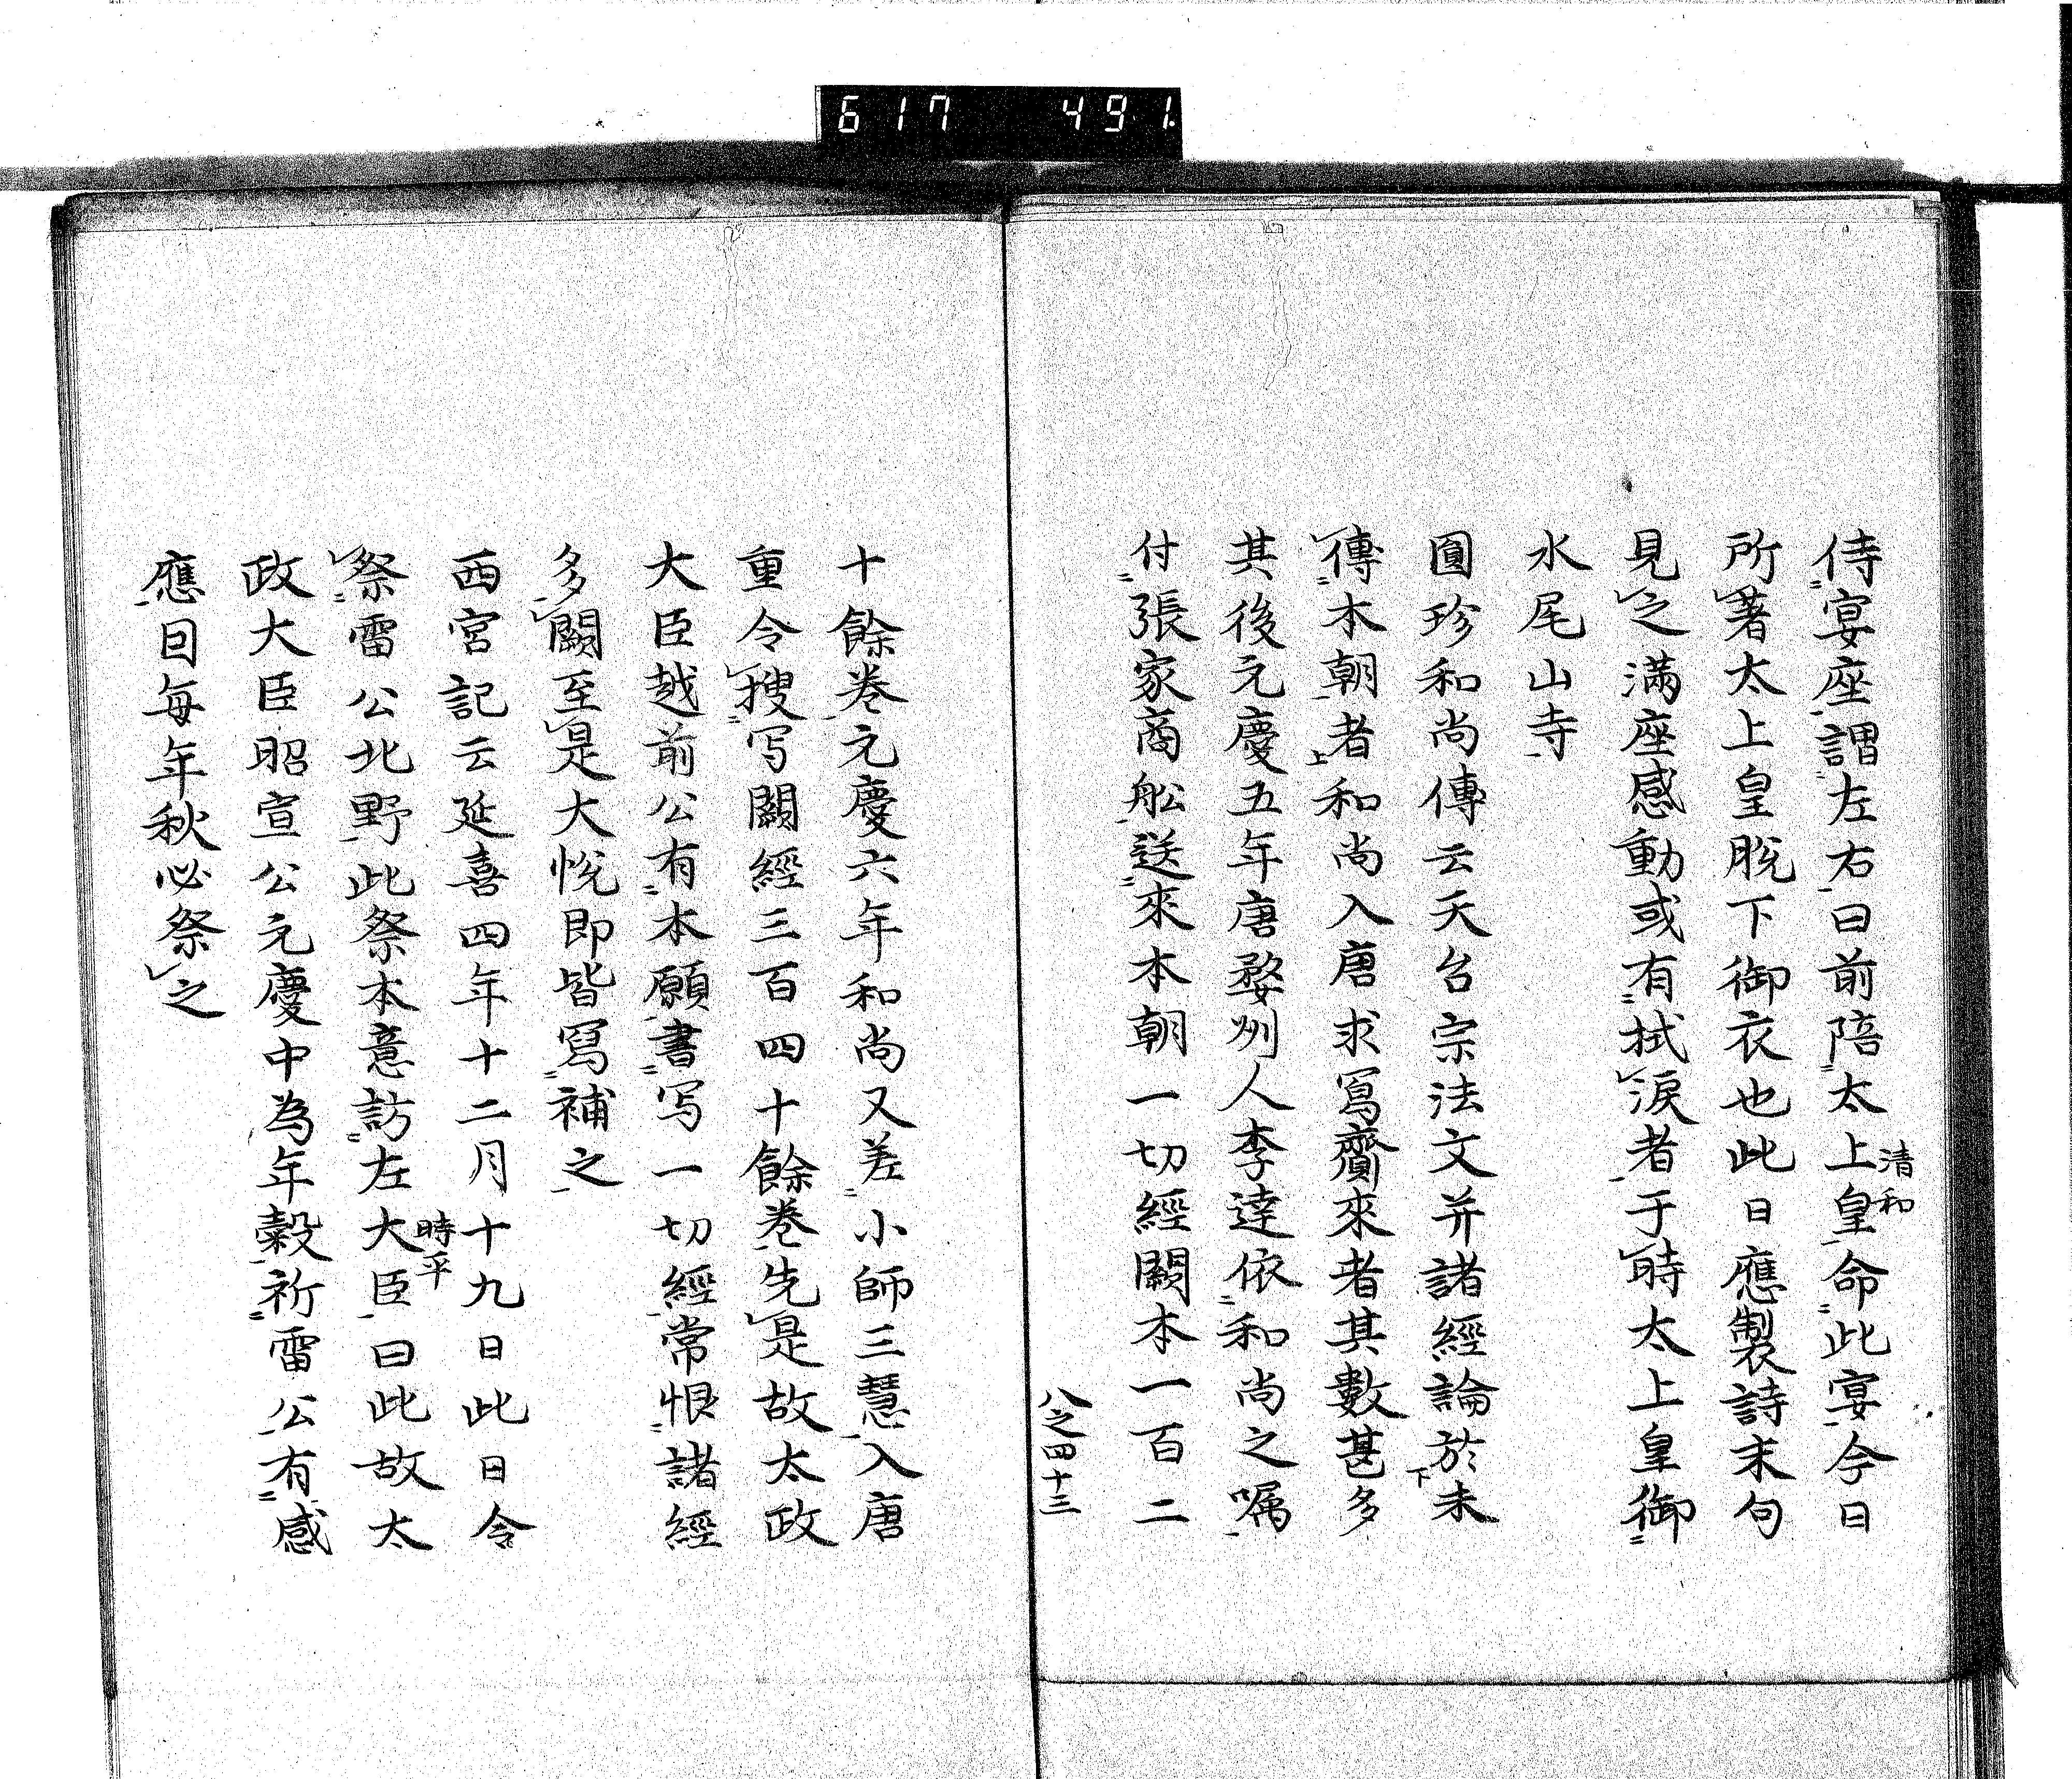 617 491.
侍宴座謂左右曰前陪太上皇命此宴今日
清和
所著太上皇脱下御衣也此日應製詩末句
見之満座感動或有拭涙者于時太上皇御
水尾山寺
圓珍和尚傳云天台宗法文并諸經論於未
下
傳本朝者和尚入唐求冩齎來者其數甚多
上
其後元慶五年唐婺州人李達依和尚之嘱
付張家商舩送來本朝一切經闕本一百二
八之四十三
十餘巻元慶六年和尚又差小師三慧入唐
重令捜写闕經三百四十餘巻先是故太政
大臣越前公有本願書写一切經常恨諸經
多闕至是大悦即皆冩補之
西宮記云延喜四年十二月十九日此日令
祭雷公北野此祭本意訪左大臣曰此故太
時平
政大臣昭宣公元慶中為年穀祈雷公有感
應因毎年秋必祭之